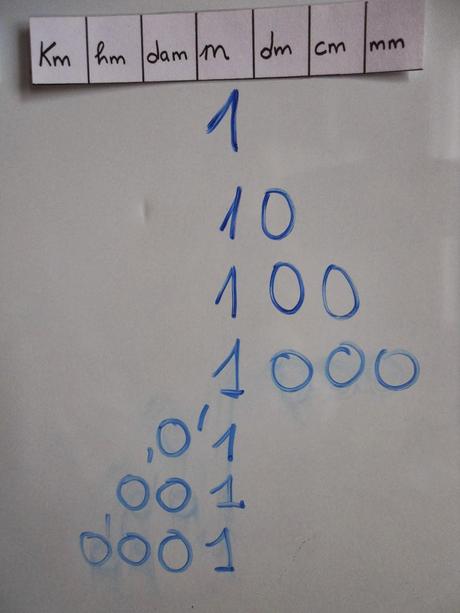 Km hm dam m dm cm mm
1
10
100
1000
,0'1
001
0'001